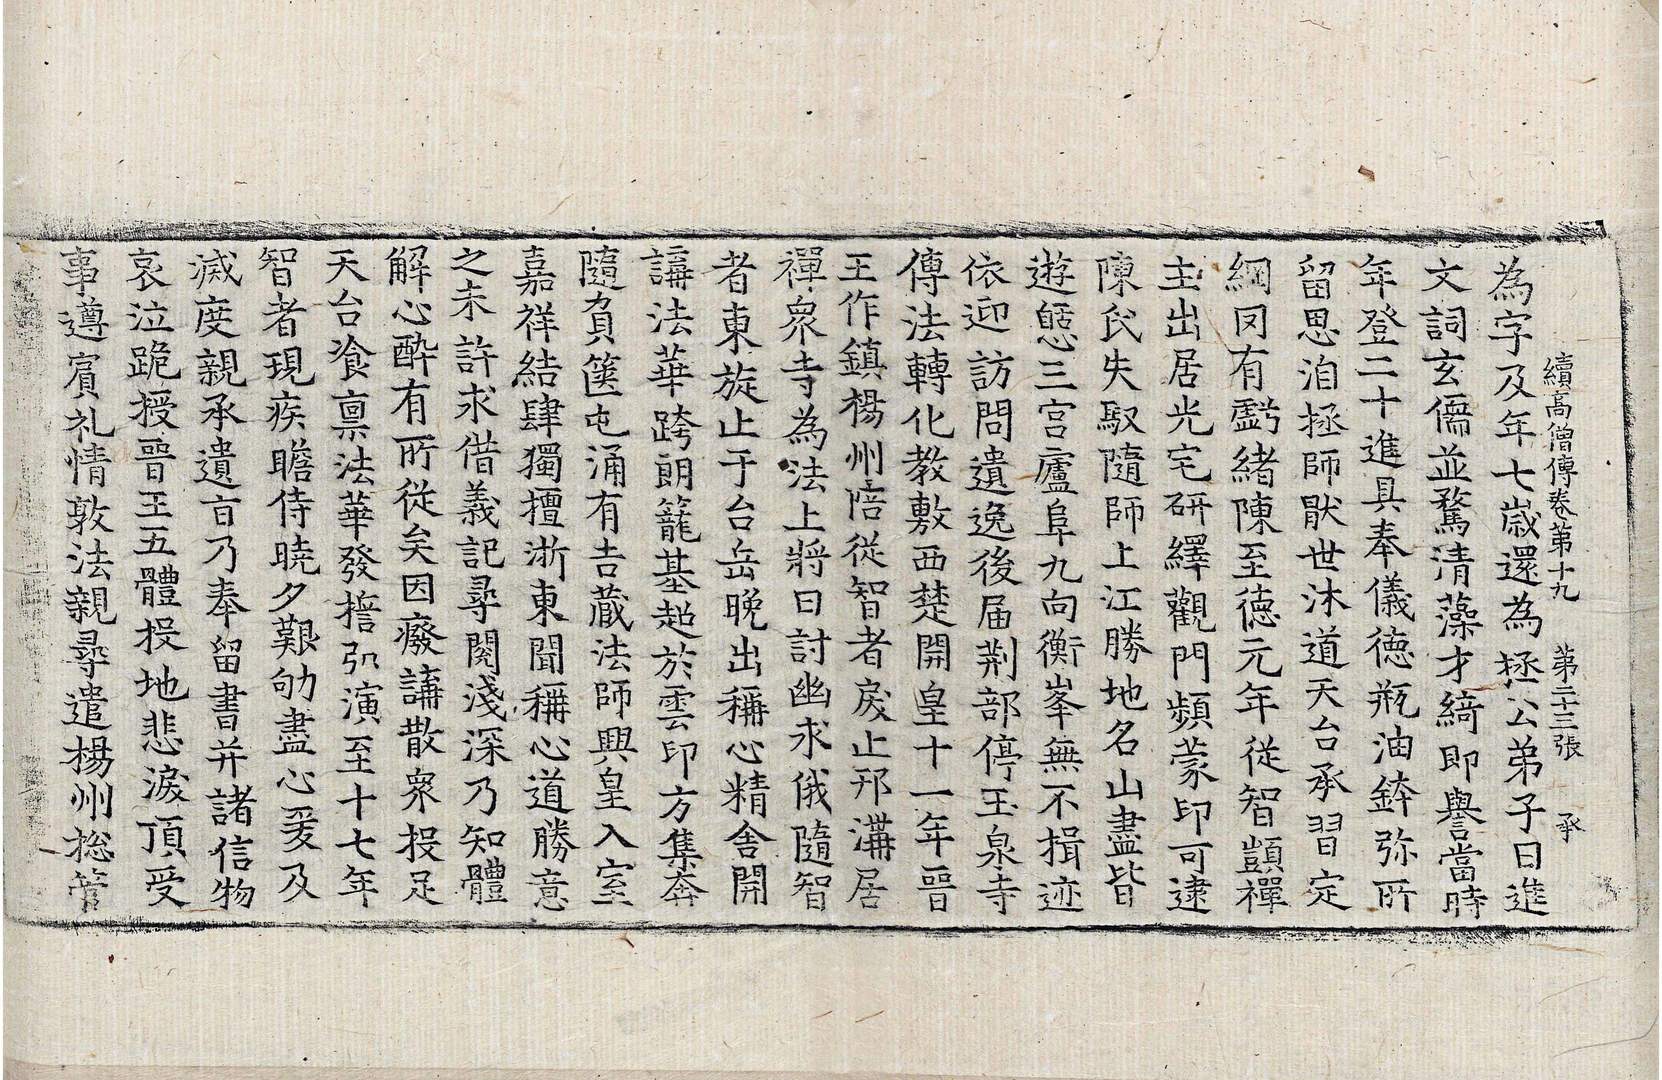 續高僧傳卷第十九　第二十三張　承
為字及年七歲還為拯公弟子日進
文詞玄儒並騖清藻才綺即譽當時
年登二十進具奉儀德瓶油鉢弥所
留思洎拯師猒世沐道天台承習定
綱罔有虧緒陳至德元年從智顗禪
主出居光宅研繹觀門頻蒙印可逮
陳氏失馭隨師上江勝地名山盡皆
遊憩三宮廬阜九向衡峯無不揖迹
依迎訪問遺逸後届荆部停玉泉寺
傳法轉化教敷西楚開皇十一年晉
王作鎮楊州陪從智者戾止邗溝居
禪眾寺為法上將日討幽求俄隨智
者東旋止于台岳晚出稱心精舍開
講法華跨朗籠基超於雲印方集奔
隨負篋屯涌有吉藏法師興皇入室
嘉祥結肆獨擅浙東聞稱心道勝意
之未許求借義記尋閱淺深乃知體
解心酔有所從矣因廢講散眾投足
天台飡禀法華發擔弘演至十七年
智者現疾瞻侍曉夕艱劬盡心爰及
滅度親承遺旨乃奉留書并諸信物
哀泣跪授晉王五體投地悲淚頂受
事遵賓礼情敦法親尋遣楊州総管